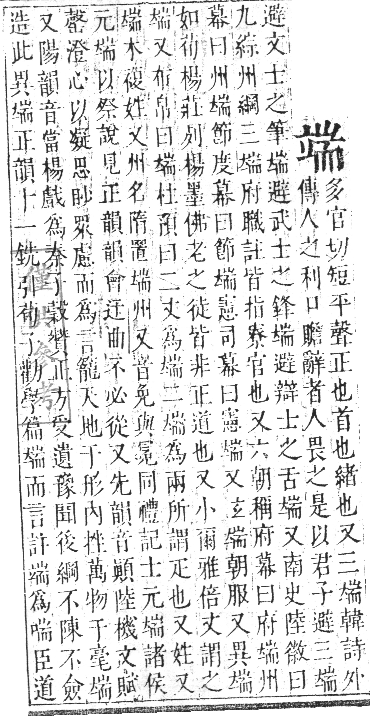 端
多官切短平聲正也首也緒也又三端韓詩外
傳人之利口贍辭者人畏之是以君子避三端
避文士之筆端避武士之鋒端避辯士之舌端又南史陸徽曰
九綜州綱三端府職註皆指寮官也又六朝稱府幕曰府端州
幕曰州端節度幕曰節端憲司幕曰憲端又玄端朝服又異端
如荀楊莊列楊墨佛老之徒皆非正道也又小爾雅倍丈謂之
端又布帛曰端杜預曰二丈為端二端為兩所謂疋也又姓又
端木複姓又州名隋置端州又音免與冕同禮記士元端諸侯
元端以祭說見正韻韻會迂曲不必從又先韻音顛陸機文賦
罄澄心以凝思眇眾慮而為言籠天地于形內挫萬物于毫端
又陽韻音當楊戲為秦子敕贊正方受遺豫聞後綱不陳不僉
造此異端正韻十一銑引荀子勸學篇端而言訓端為喘臣道